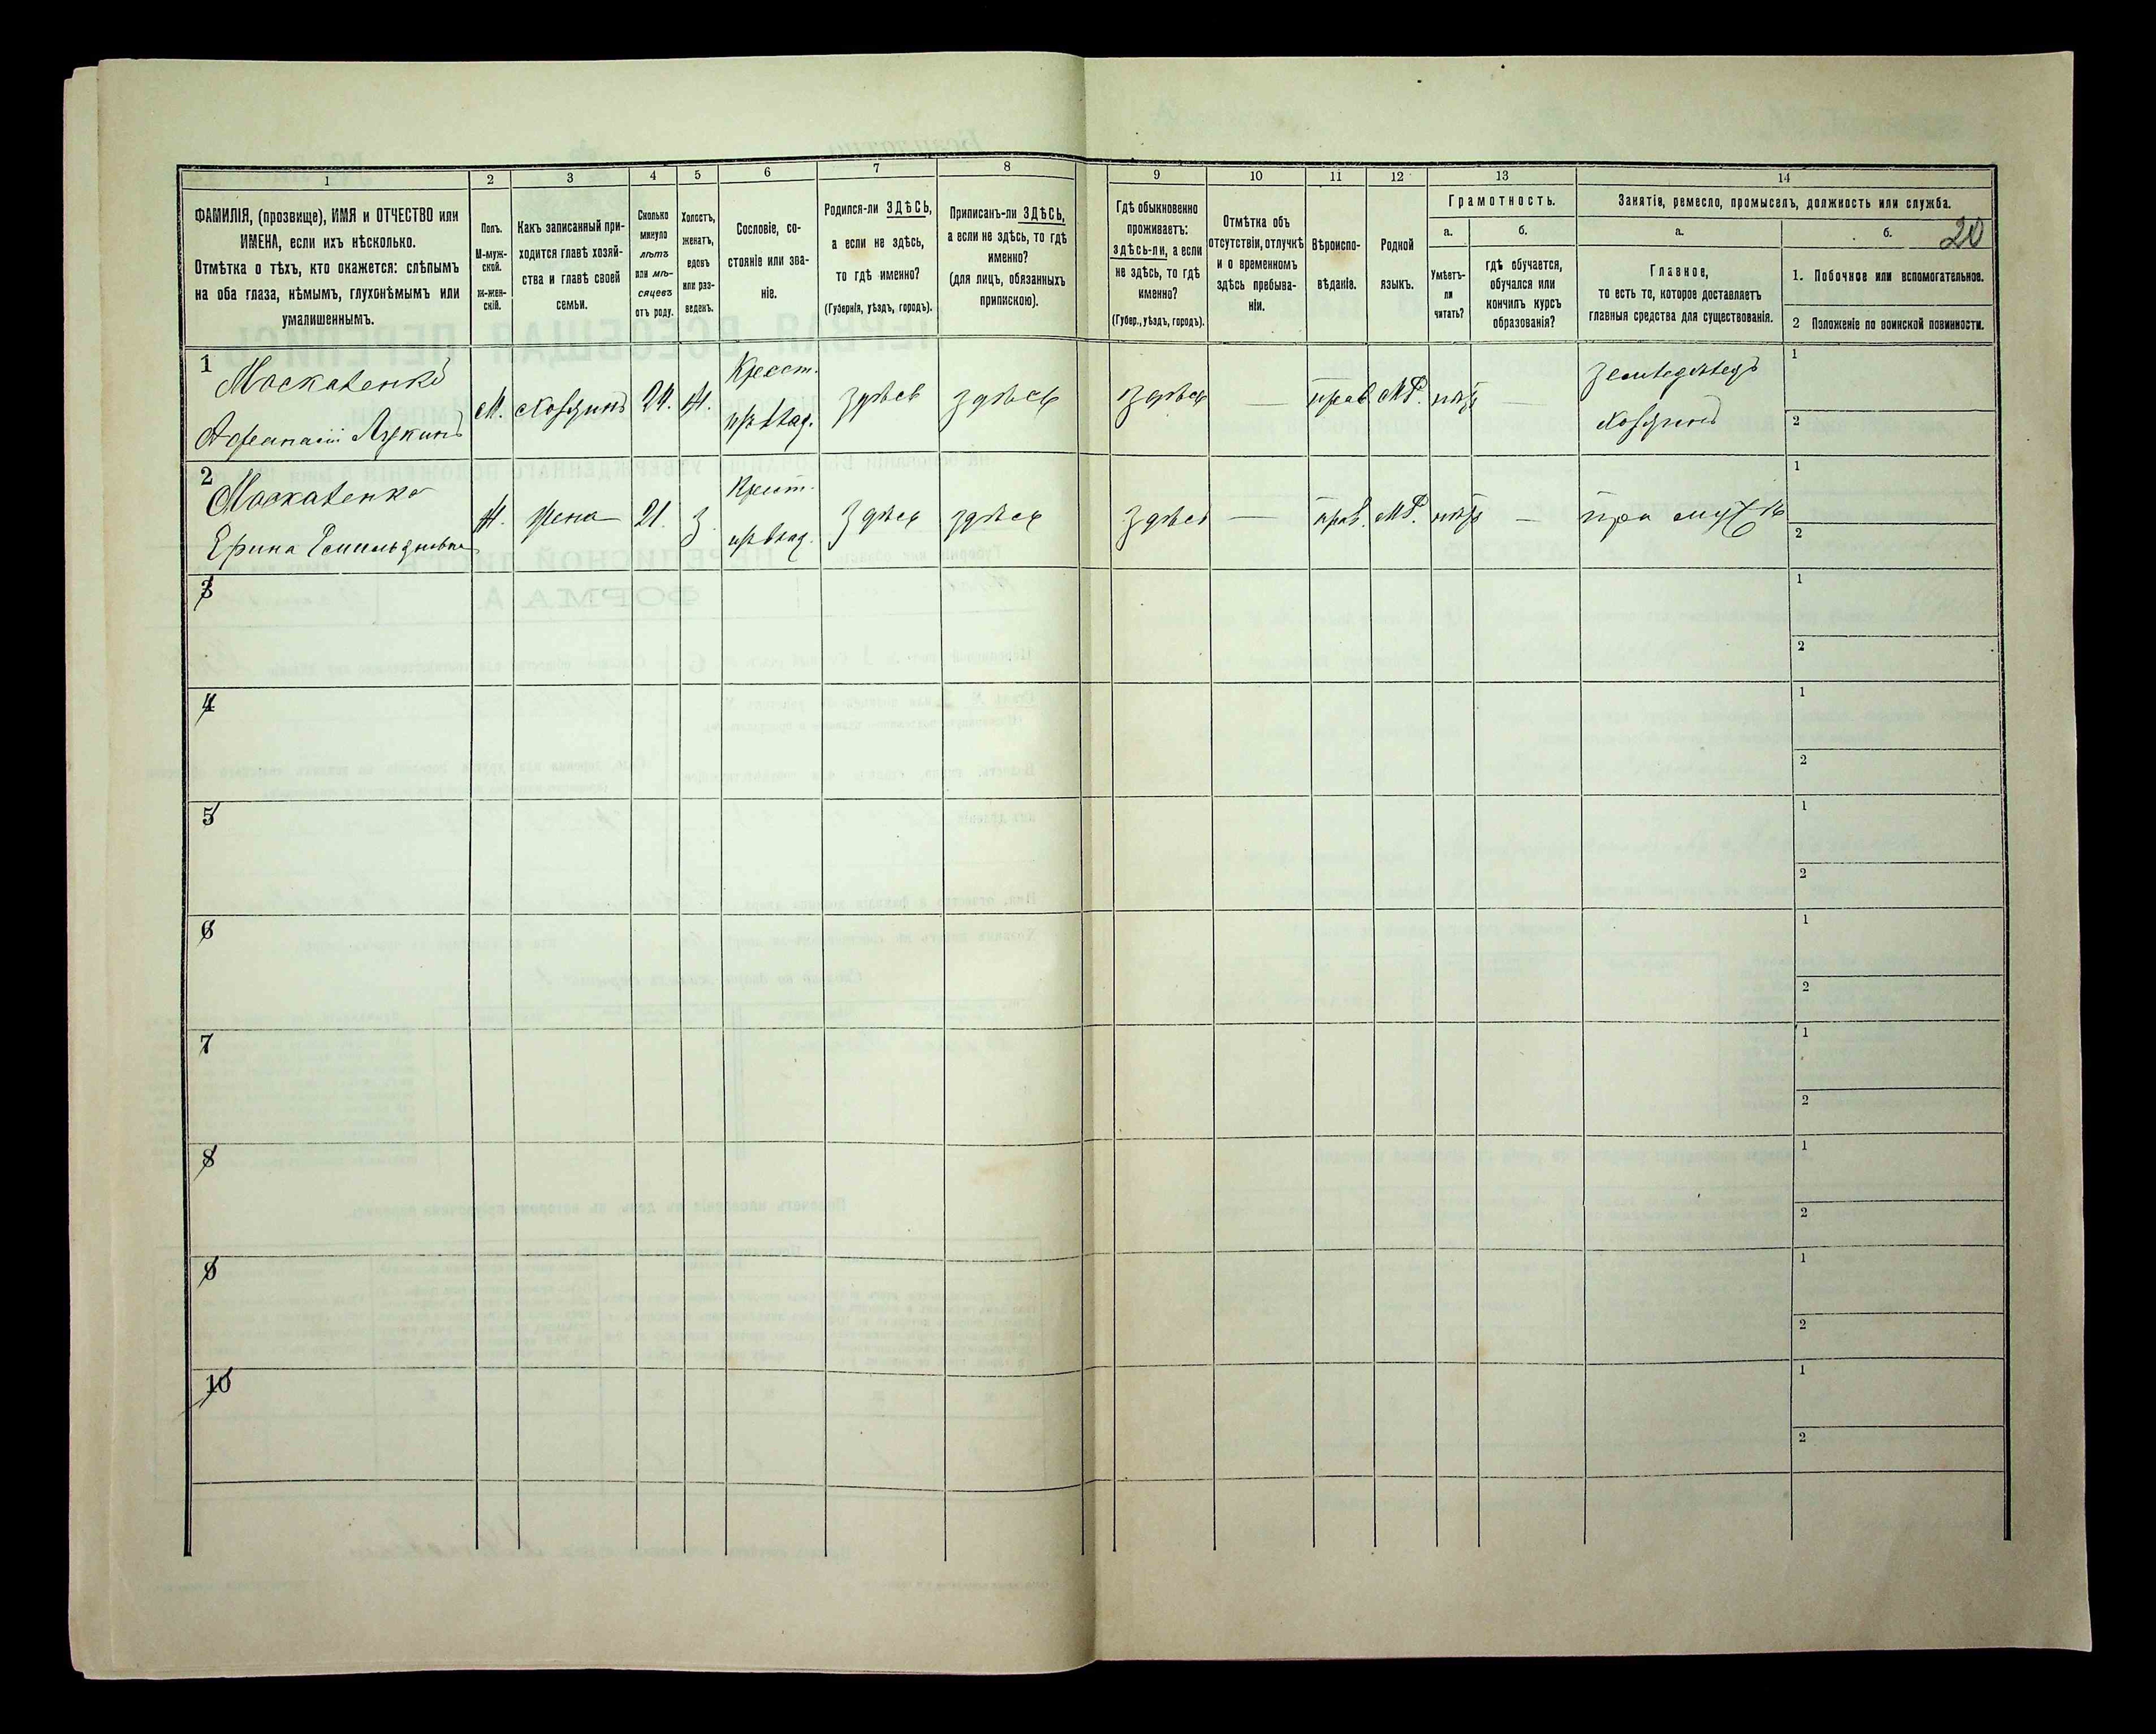 20
1 2 3 4 5 6 7 8 9 10 11 12 13 14
ФАМИЛІЯ, (прозвище), ИМЯ и ОТЧЕСТВО или
ИМЕНА, если ихъ нѣсколько.
Отмѣтка о тѣхъ, кто окажется: слѣпымъ
на оба глаза, нѣмымъ, глухонѣмымъ или
умалишеннымъ.
Полъ.
М-муж-
ской.
Ж-жен-
скій.
Какъ записанный при-
ходится главѣ хозяй-
ства и главѣ своей
семьи.
Сколько
минуло
лѣтъ
или мѣ-
сяцевъ
отъ роду.
Холостъ,
женатъ,
вдовъ
или раз-
веденъ.
Сословіе, со-
стояніе или зва-
ніе.
Родился-ли ЗДѢСЬ,
а если не здѣсь,
то гдѣ именно?
(Губернія, уѣздъ, городъ).
Приписанъ-ли ЗДѢСЬ,
а если не здѣсь, то гдѣ
именно?
(для лицъ, обязанныхъ
припискою).
Гдѣ обыкновенно
проживаетъ:
здѣсь-ли, а если
не здѣсь, то гдѣ
именно?
(Губер., уѣздъ, городъ).
Отмѣтка объ
отсутствіи, отлучкѣ
и о временномъ
здѣсь пребыва-
ніи.
Вѣроиспо-
вѣданіе.
Родной
языкъ.
Грамотность.
а.
Умѣетъ-
ли
читать?
б.
гдѣ обучается,
обучался или
кончилъ курсъ
образованія?
Занятіе, ремесло, промыселъ, должность или служба.
а.
Главное,
то есть то, которое доставляетъ
главныя средства для существованія.
б.
1. Побочное или вспомогательное.
2 Положеніе по воинской повинности.
1 Москаленко Крест. земледѣлецъ 1
Афанасій М. хозяинъ 24. Ж. здѣсь здѣсь здѣсь — прав. МР. нѣтъ — хозяинъ 2
2 Москаленко Крест. 1
Ж. жена 21. З. здѣсь здѣсь здѣсь — прав. МР. нѣтъ — при мужѣ 2
3 1
2
4 1
2
5 1
2
6 1
2
7 1
2
8 1
2
9 1
2
10 1
2